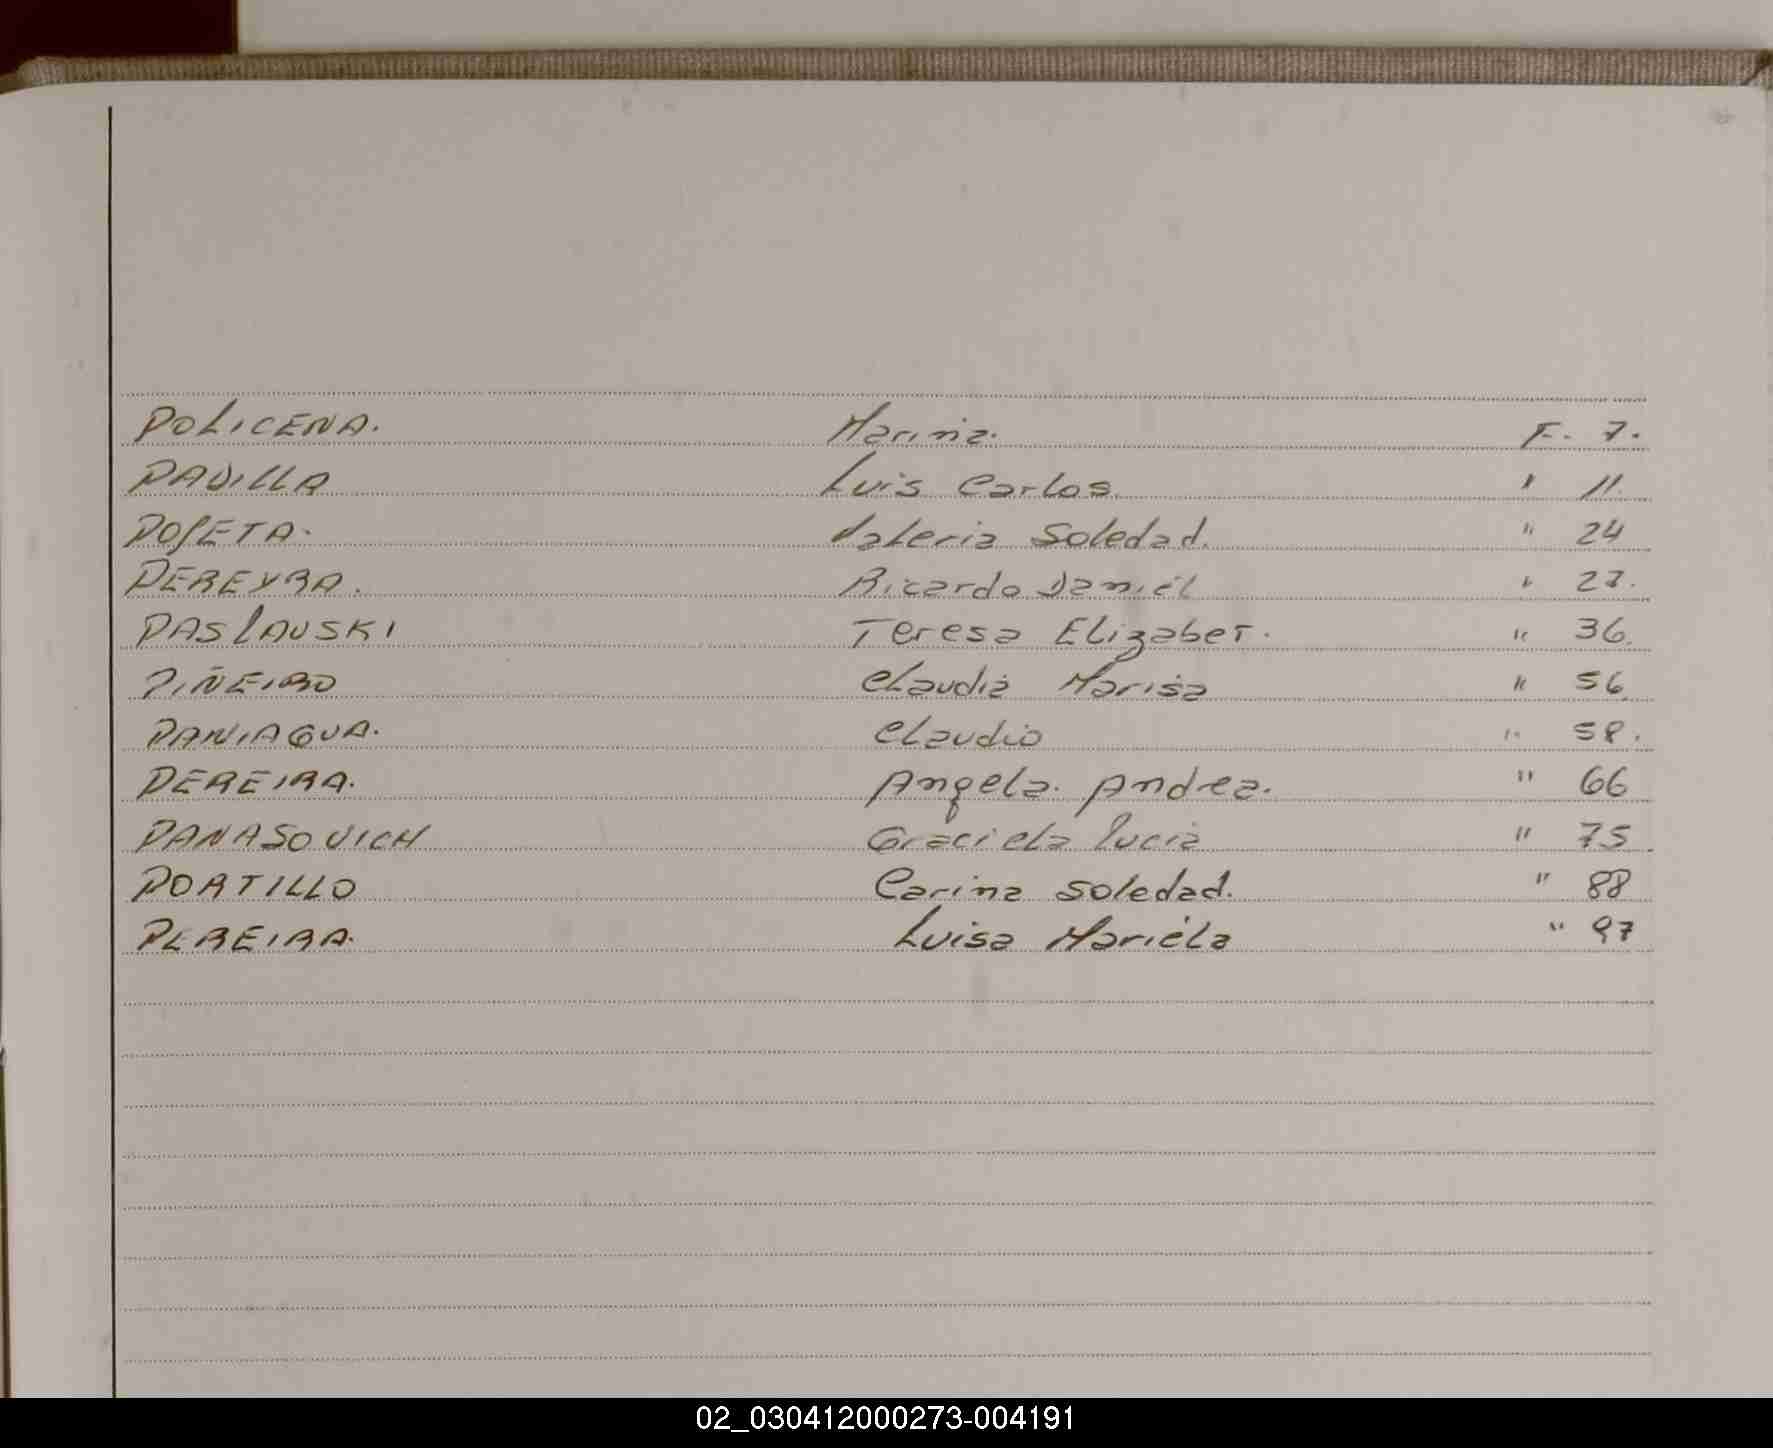 POLICENA. Marina. F. 7.
PADILLA Luis Carlos. " 11.
POSETA. Valeria Soledad. " 24
PEREYRA. Ricardo Daniel " 27.
PASLAUSKI Teresa Elizabet. " 36.
PIÑEIRO Claudia Marisa " 56
PANIAGUA. Claudio " 58.
PEREIRA. Angela. Andrea. " 66
PANASOVICH Graciela Lucia " 75
PORTILLO Carina Soledad. " 88
PEREIRA. Luisa Mariela " 97
02_030412000273-004191